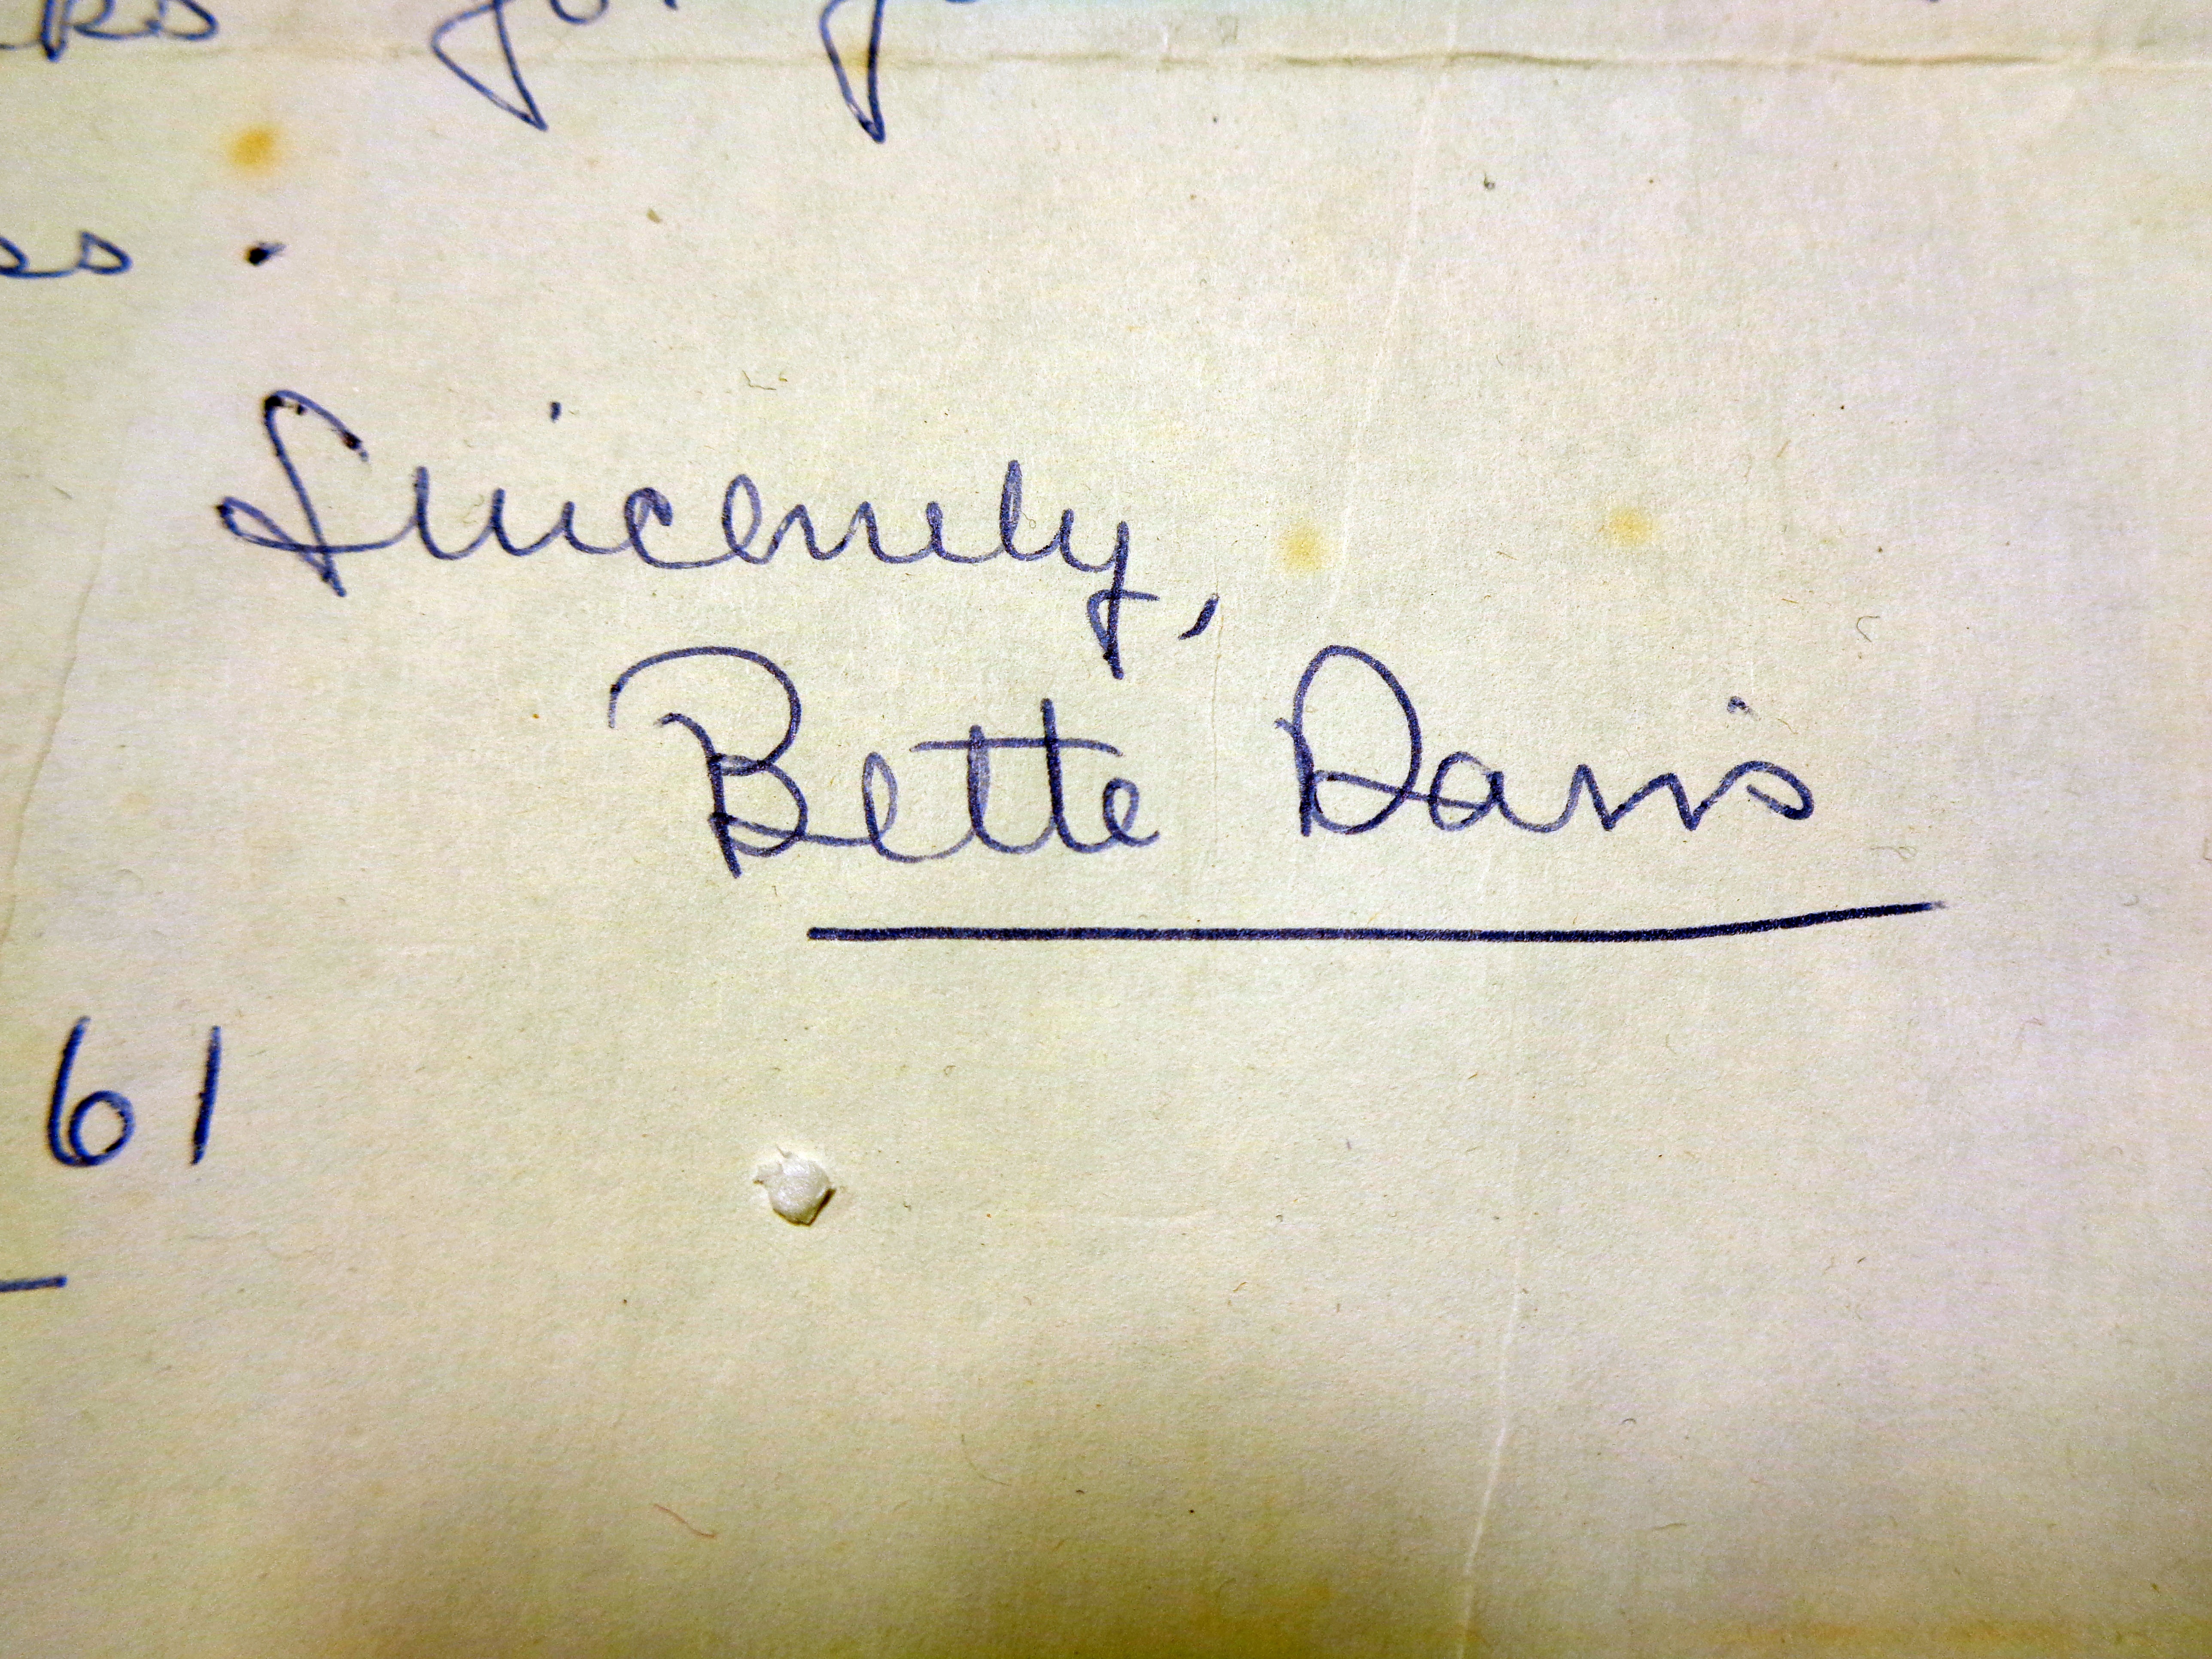 for
Sincerely,
Bette Davis
61